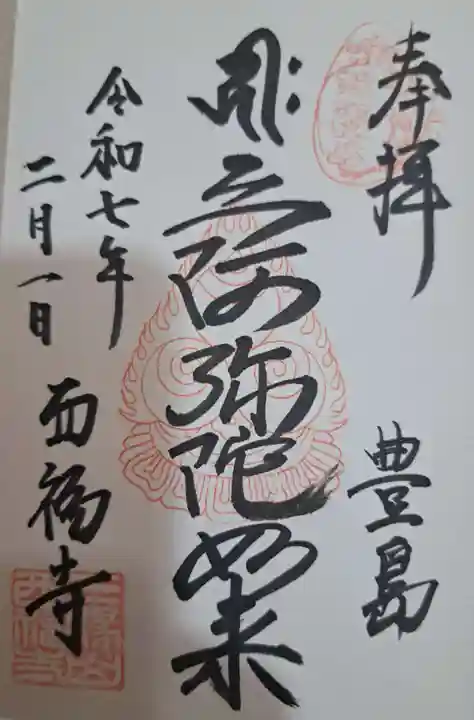 奉拝
豊島
六阿弥陀如来
令和七年
二月一日
西福寺